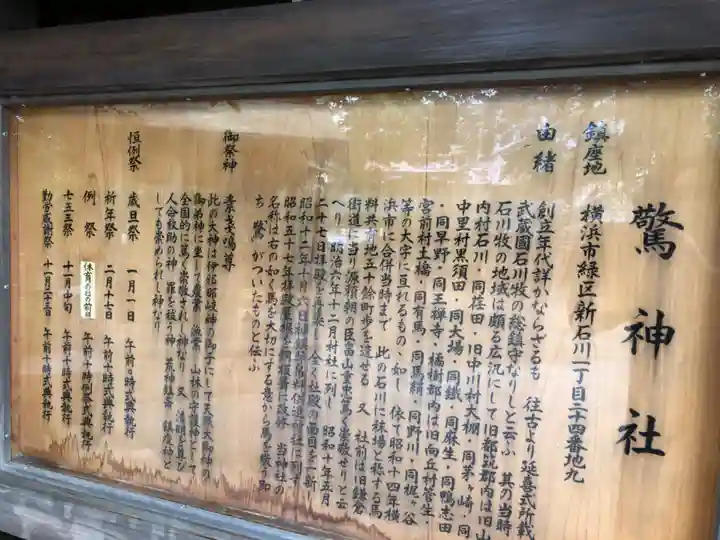 驚神社
鎮座地 横浜市緑区新石川一丁目二十四番地九
由緒 創立年代詳かならざるも 往古より延喜式所載
武蔵國石川牧の総鎮守なりしと云ふ 其の当時
石川牧の地域は頗る広汎にして旧都筑郡内は旧山
内村石川・同荏田・旧中川村大棚・同茅ヶ崎・同
中里村黒須田・同大場・同鐵・同麻生・同鴨志田
・同早野・同王禅寺・橘樹郡内は旧向丘村菅生・
宮前村土橋・同有馬・同馬絹・同野川・同梶ヶ谷
等の大字に亘れるもの、如し 依て昭和十四年横
浜市に合併当時まで 此の石川に秣場と称する馬
料共有地五十餘町歩を遺せる 又 社前は旧鎌倉
街道に当り源頼朝の臣畠山重忠篤く崇敬せりと云
へり 明治六年十二月村社に列し 昭和十年五月
二十七日拝殿を再築し 全く社殿の面目を一新
昭和十二年十月六日神饌幣帛料供進神社に列す
昭和五十七年拝殿屋根を銅板葺に改修 当神社の
名称は右の如く馬を大切にする意から馬を敬う即
ち 驚 がついたものと伝ふ
御祭神 素盞嗚尊
此の大神は伊弉那岐神の御子にして天照大御神の
御弟神に坐して農業 漁業 山林の守護神として
全国的に篤く崇敬され
人命救助の神 罪を祓う神 荒神鎮祭 鎮疫神と
しても崇められし神なり
恒例祭 歳旦祭 一月一日 午前0時式典執行
祈年祭 二月十七日 午前十時式典執行
例祭 体育の日の前日 午前十時例祭式典執行
七五三祭 十一月中旬 午前十時式典執行
勤労感謝祭 十一月二十三日 午前十時式典執行